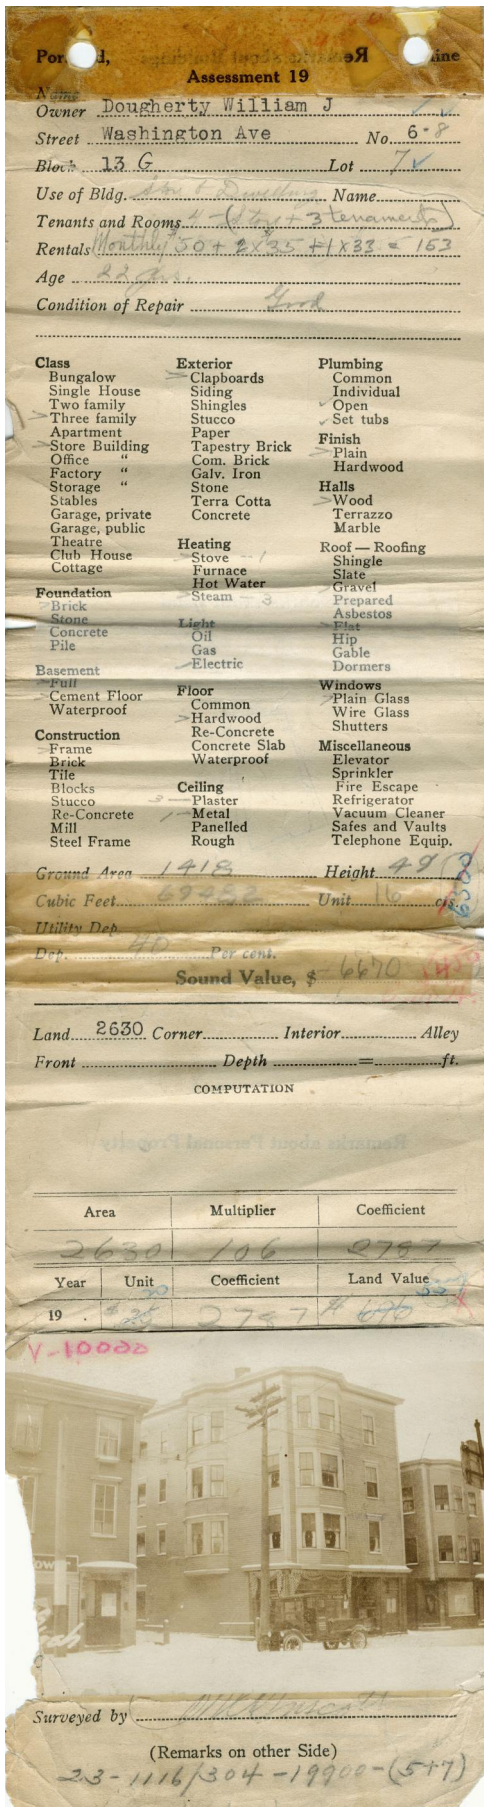 Portland, Maine
Assessment 19
Name
Owner Dougherty William J
Street Washington Ave No. 6-8
Block 13 G Lot 7
Use of Bldg. Store & Dwelling Name
Tenants and Rooms 4 - (Store + 3 tenements)
Rentals Monthly 50 + 2x35 + 1x33 = 153
Age 22 yrs.
Condition of Repair Good
Class
Bungalow
Single House
Two family
Three family
Apartment
Store Building
Office "
Factory "
Storage "
Stables
Garage, private
Garage, public
Theatre
Club House
Cottage
Foundation
Brick
Stone
Concrete
Pile
Basement
Full
Cement Floor
Waterproof
Construction
Frame
Brick
Tile
Blocks
Stucco
Re-Concrete
Mill
Steel Frame
Exterior
Clapboards
Siding
Shingles
Stucco
Paper
Tapestry Brick
Com. Brick
Galv. Iron
Stone
Terra Cotta
Concrete
Heating
Stove - 1
Furnace
Hot Water
Steam - 3
Light
Oil
Gas
Electric
Floor
Common
Hardwood
Re-Concrete
Concrete Slab
Waterproof
Ceiling
3 - Plaster
1 - Metal
Panelled
Rough
Plumbing
Common
Individual
Open
Set tubs
Finish
Plain
Hardwood
Halls
Wood
Terrazzo
Marble
Roof — Roofing
Shingle
Slate
Gravel
Prepared
Asbestos
Flat
Hip
Gable
Dormers
Windows
Plain Glass
Wire Glass
Shutters
Miscellaneous
Elevator
Sprinkler
Fire Escape
Refrigerator
Vacuum Cleaner
Safes and Vaults
Telephone Equip.
Ground Area 1418 Height 49
Cubic Feet 69482 Unit 16 cts.
6300
Utility Dep.
Dep. 40 Per cent.
Sound Value, $ 6670
Land 2630 Corner Interior Alley
Front Depth = ft.
COMPUTATION
Remarks about Personal Property
Area Multiplier Coefficient
2630 106 2787
Year Unit Coefficient Land Value
19 . 2787
V-10000
Surveyed by
(Remarks on other Side)
23-1116/304-19900-(5+7)